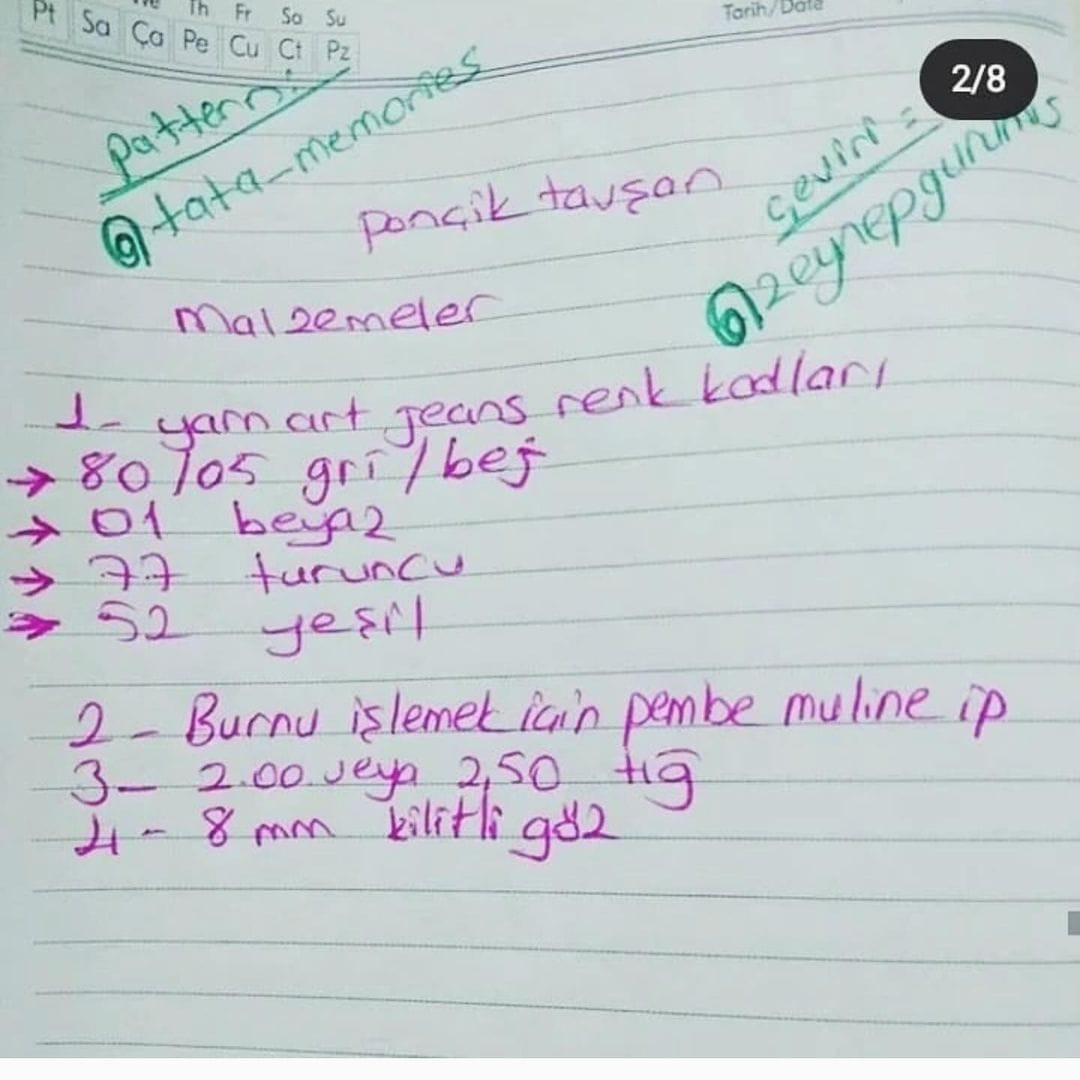 Th Fr Sa Su
Pt Sa Ça Pe Cu Ct Pz
Tarih/Date
2/8
pattern:
@tata_memories
çeviri =
@zeynepgurumis
ponçik tavşan
malzemeler
1- yarn art jeans renk kodları
→ 80/05 gri/bej
→ 01 beyaz
→ 77 turuncu
→ 52 yeşil
2- Burnu işlemek için pembe muline ip
3- 2.00 veya 2,50 tığ
4- 8 mm kilitli göz